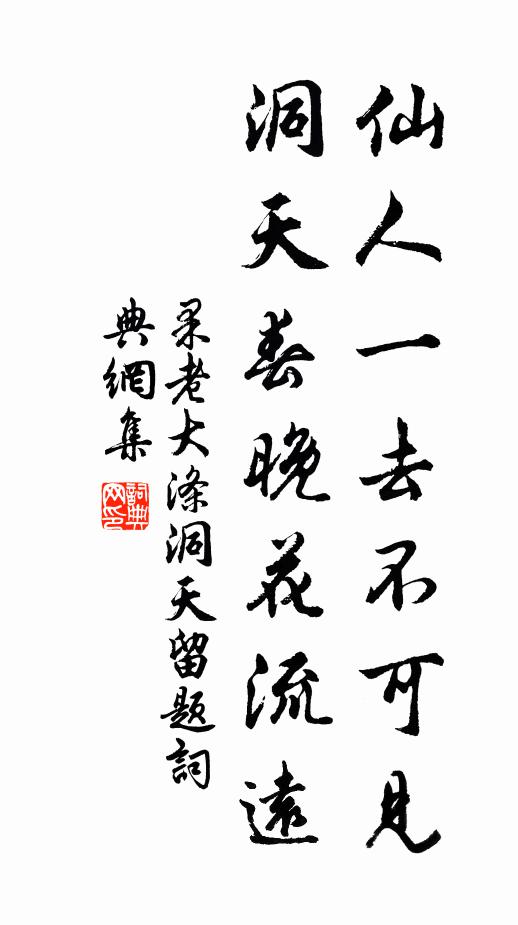 仙人一去不可見
洞天春晚花流遠
呆老大滌洞天留題詞
典網集
詞典網印